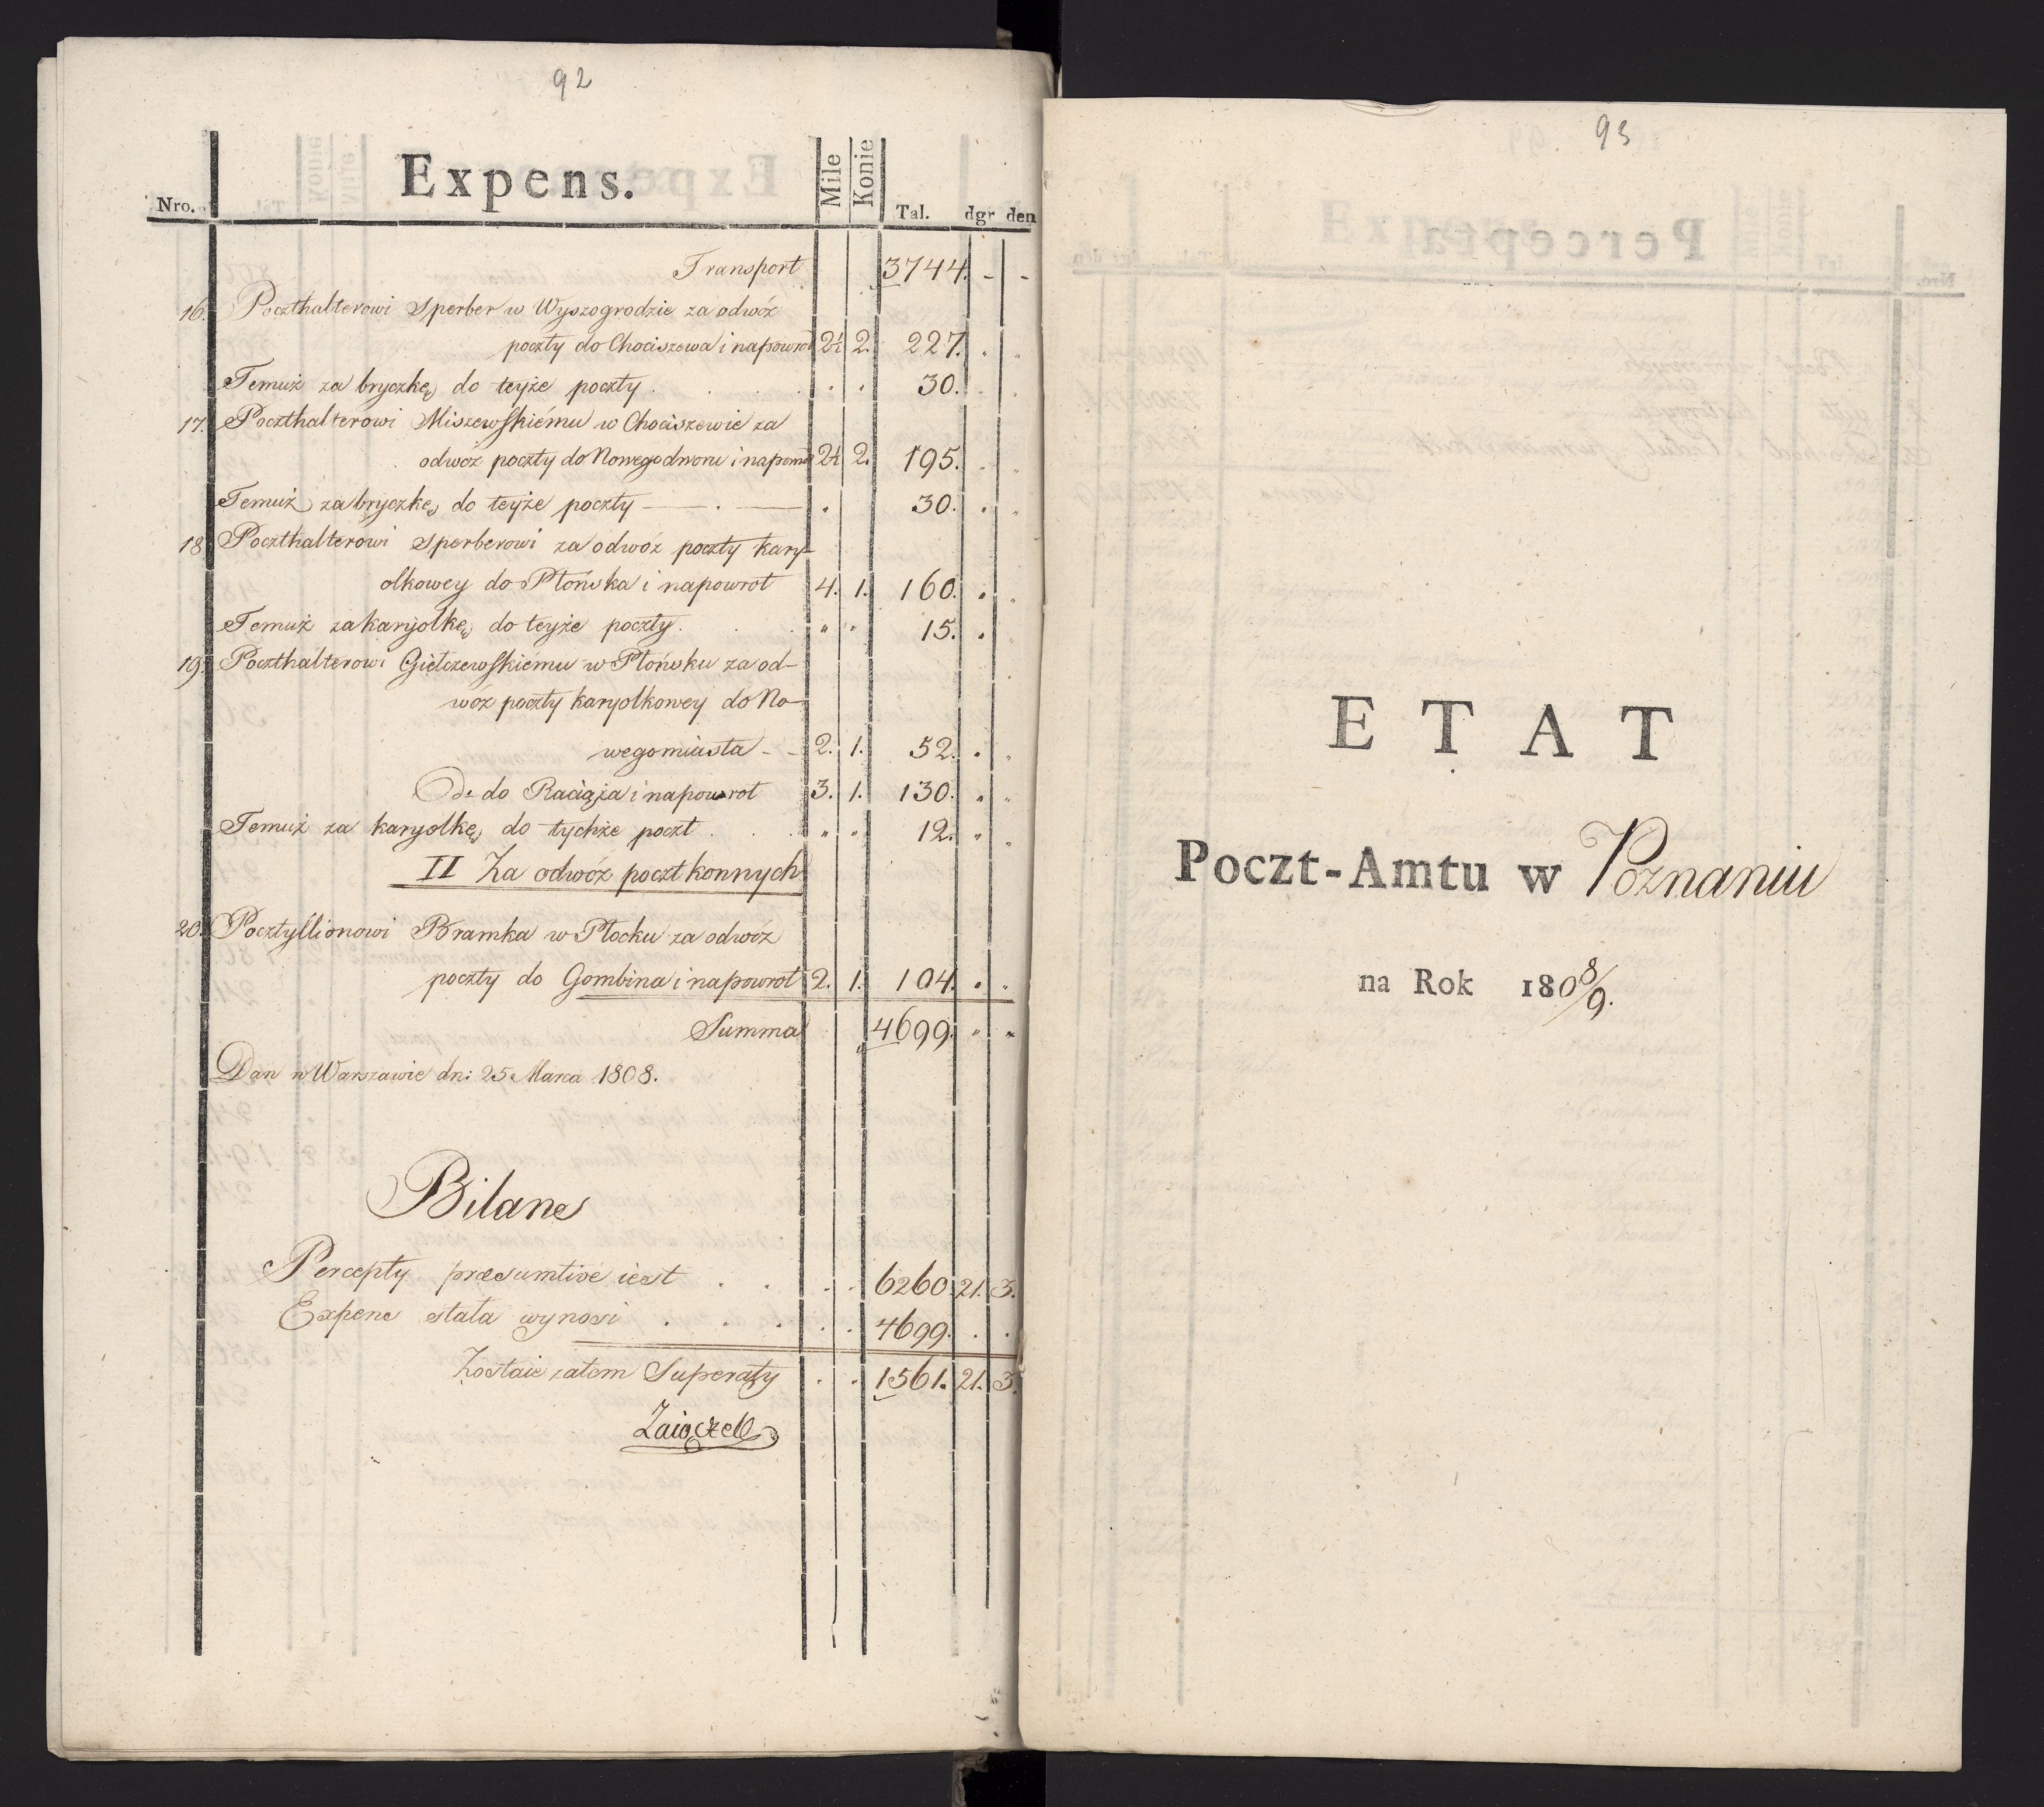 92
Nro. Expens. Mile Konie Tal. dgr den
Transport 3744. - -
16. Poczthalterowi Sperber w Wyszogrodzie za odwóz
poczty do Chociszewa i napowrot 2½ 2. 227. . "
Temuż za bryczkę do teyże poczty . . . . . 30. . .
17. Poczthalterowi Miszewskiému w Chociszewie za
odwóz poczty do Nowegodworu i napowrot 2½ 2. 195. " "
Temuż za bryczkę do teyże poczty — . — . 30. . "
18. Poczthalterowi Sperberowi za odwóz poczty kary-
olkowey do Płońska i napowrot 4. 1. 160. . "
Temuż za karyolkę do teyże poczty. . . " . 15. . "
19. Poczthalterowi Giełczewskiému w Płońsku za od-
wóz poczty karyolkowey do No-
wegomiasta - - 2. 1. 52. . "
Do do Raciąża i napowrot 3. 1. 130. " "
Temuż za karyolkę do tychże poczt . . . " " 12. " "
II Za odwóz poczt konnych
20. Pocztyllionowi Bramka w Płocku za odwóz
poczty do Gombina i napowrot 2. 1. 104. . "
Summa 4699. " "
Dan w Warszawie dn: 25 Marca 1808.
Bilans
Percepty præsumtive iest . . . . 6260. 21. 3.
Expens stała wynosi . . . . . 4699. . .
Zostaie zatem Superaty . . 1561. 21. 3.
Zaiączek
93
ETAT
Poczt-Amtu w Poznaniu
na Rok 1808/9.